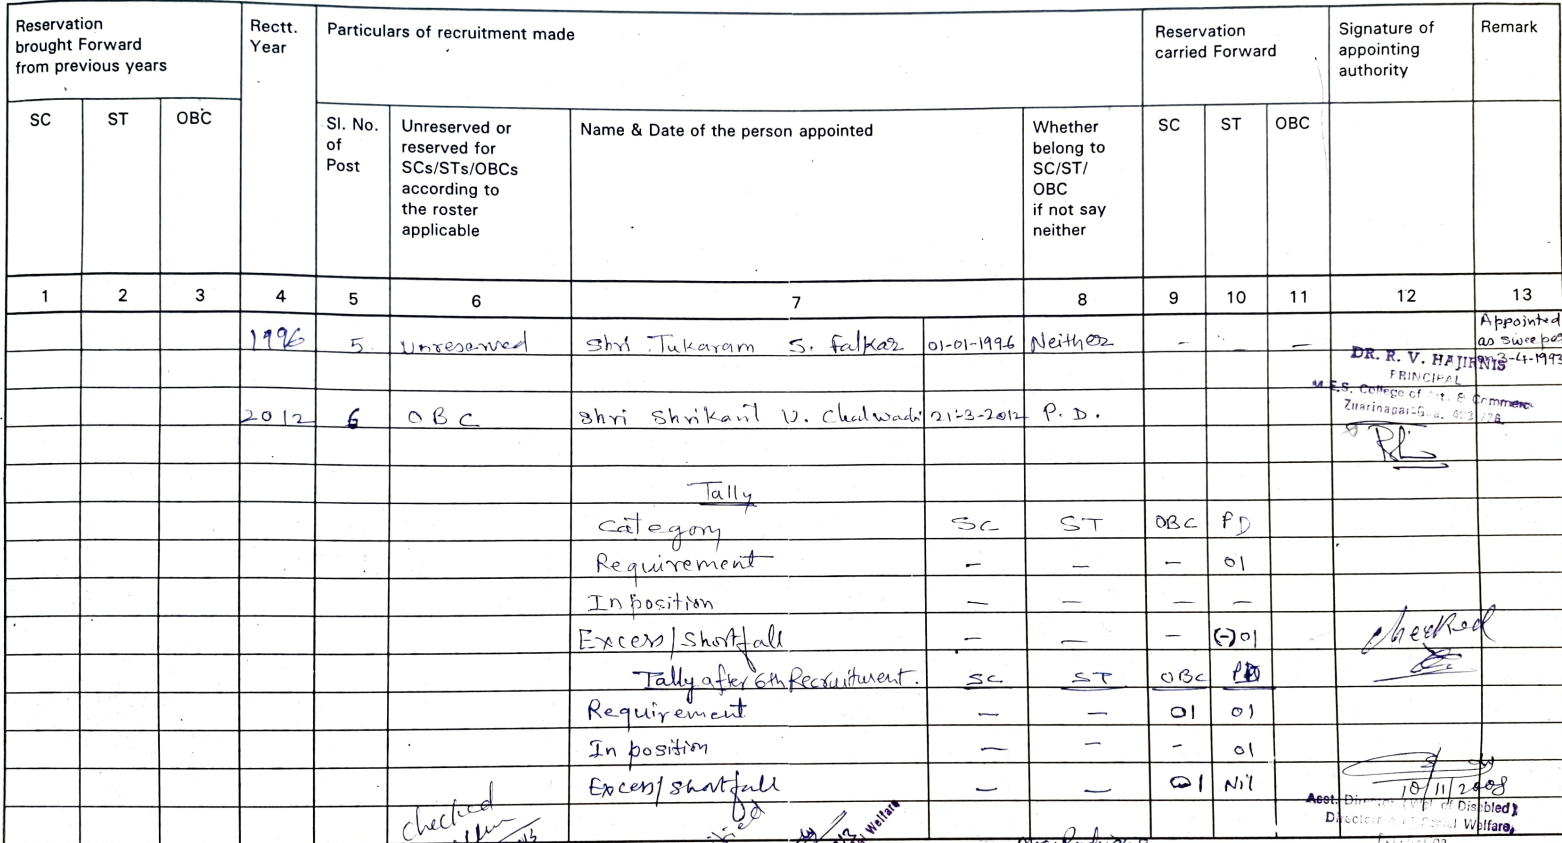 Reservation brought Forward from previous years
Rectt. Year
Particulars of recruitment made
Reservation carried Forward
Signature of appointing authority
Remark
SC ST OBC
Sl. No. of Post
Unreserved or reserved for SCs/STs/OBCs according to the roster applicable
Name & Date of the person appointed
Whether belong to SC/ST/ OBC if not say neither
SC ST OBC
1 2 3 4 5 6 7 8 9 10 11 12 13
1996 5 Unreserved Shri Tukaram S. Falkar 01-01-1996 Neither - - —
Appointed
as sweeper
3-4-1993
DR. R. V. HAJIRNIS
PRINCIPAL
M.E.S. College of Arts & Commerce
Zuarinagar-Goa.
2012 6 OBC Shri Shrikant V. Chalwadi 21-3-2012 P. D.
Tally
Category SC ST OBC PD
Requirement - — - 01
In position — — — —
Excess/Shortfall — — - (-)01
checked
Tally after 6th Recruitment. SC ST OBC PD
Requirement — — 01 01
In position — — - 01
Excess/Shortfall — — 01 Nil
10/11/2008
Asst. of Disabled)
Social Welfare,
checked
Welfare